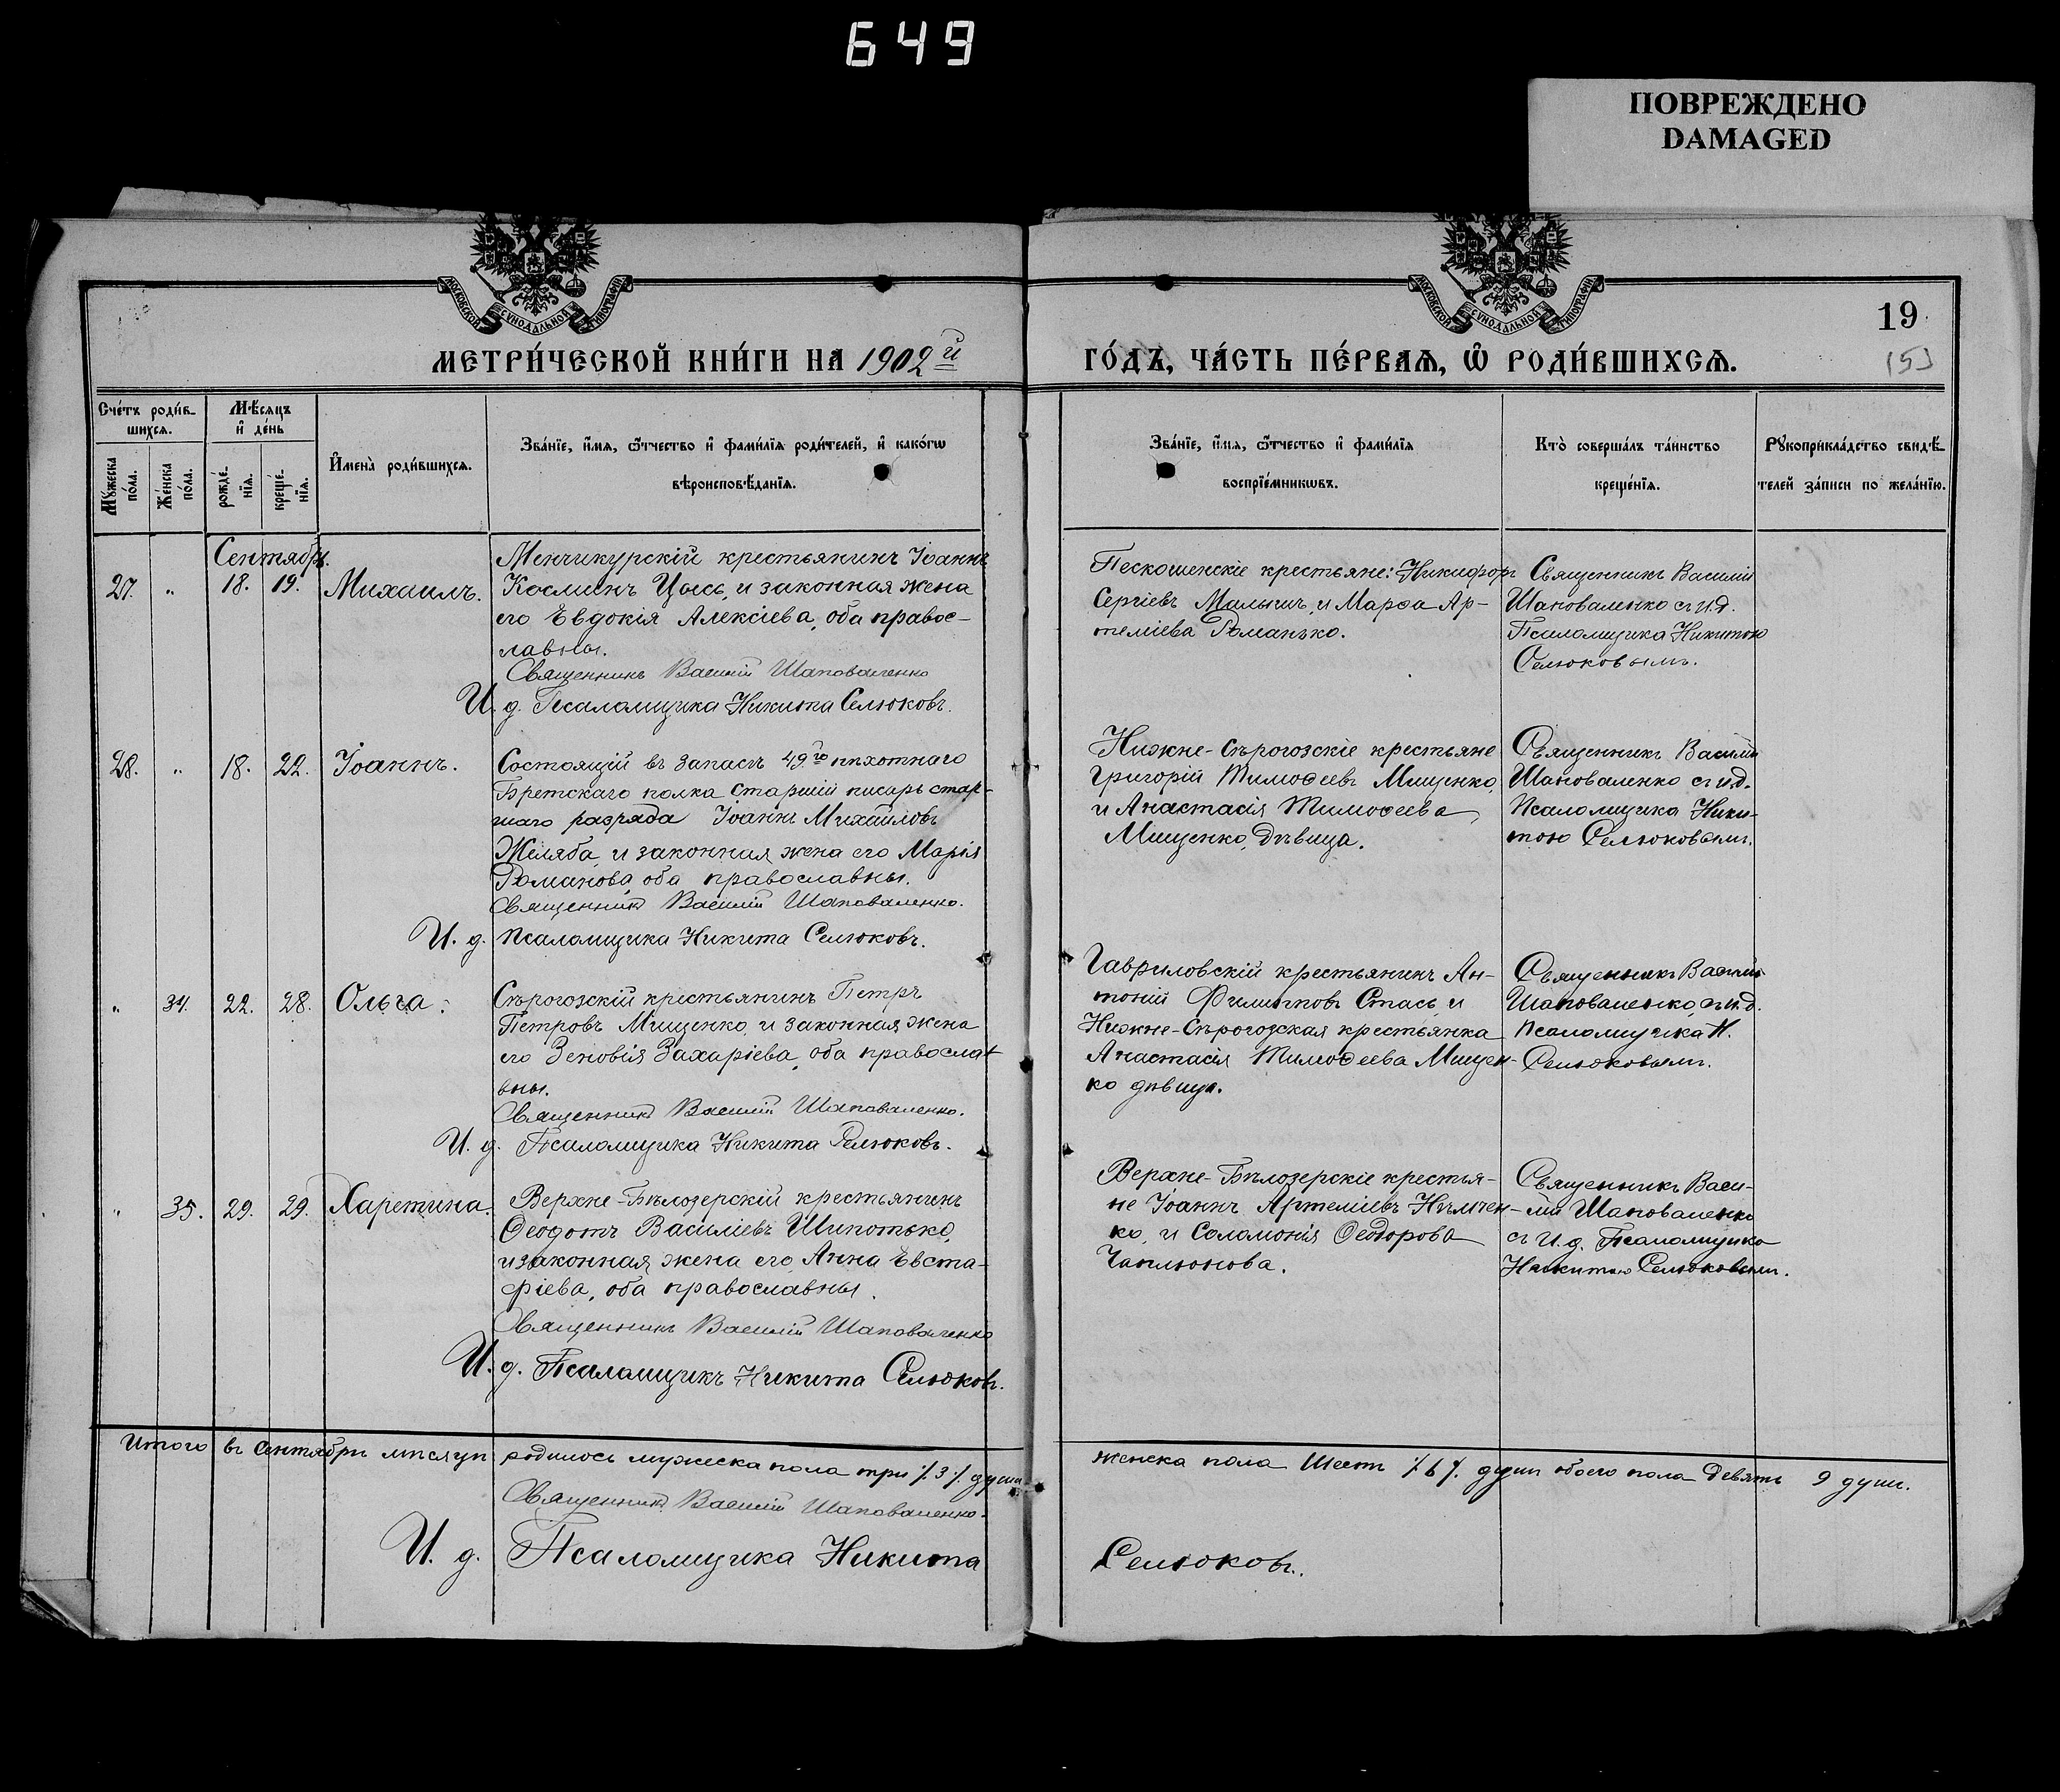 649
ПОВРЕЖДЕНО
DAMAGED
МОСКОВСКОЙ СУНОДАЛЬНОЙ ТИПОГРАФІИ
МОСКОВСКОЙ СУНОДАЛЬНОЙ ТИПОГРАФІИ
19
МЕТРИ́ЧЕСКОЙ КНИ́ГИ НА 1902й
ГО́ДЪ, ЧА́СТЬ ПЕ́РВАѦ, Ѡ҆ РОДИ́ВШИХСѦ.
Сче́тъ роди́в-
шихсѧ.
Мѣ́сѧцъ
и҆ де́нь
Мꙋ́жеска
по́ла.
Же́нска
по́ла.
рожде́-
нїѧ.
креще́-
нїѧ.
И҆мена̀ роди́вшихсѧ.
Зва́нїе, и҆́мѧ, ѻ҆́тчество и҆ фами́лїѧ роди́телей, и҆ како́гѡ
вѣроисповѣ́данїѧ.
Зва́нїе, и҆́мѧ, ѻ҆́тчество и҆ фами́лїѧ
воспрїе́мникѡвъ.
Кто̀ соверша́лъ та́инство
креще́нїѧ.
Рꙋкоприкла́дство свидѣ́-
телей за́писи по жела́нїю.
Сентябрь.
27. " 18. 19. Михаилъ.
Менчикурскій крестьянинъ Іоаннъ
Косминъ Цысь, и законная жена
его Евдокія Алексіева, оба правос-
лавны.
Священникъ Василій Шаповаленко
И. д. Псаломщика Никита Селюковъ.
Пескошенскіе крестьяне: Никифоръ
Сергіевъ Малышъ, и Марѳа Ар-
теміева Романько.
Священникъ Василій
Шаповаленко съ и.д.
Псаломщика Никитою
Селюковымъ.
28. " 18. 22. Іоаннъ.
Состоящій въ запасѣ 49го пѣхотнаго
Бретскаго полка старшій писарь стар-
шаго разряда Іоаннъ Михайловъ
Желяба, и законная жена его Марія
Романова, оба православны.
Священникъ Василій Шаповаленко.
И. д. псаломщика Никита Селюковъ.
Нижне-Сѣрогозскіе крестьяне
Григорій Тимоѳеевъ Мищенко,
и Анастасія Тимоѳеева
Мищенко, дѣвица.
Священникъ Василій
Шаповаленко съ и.д.
Псаломщика Ники-
тою Селюковымъ.
" 34. 22. 28. Ольга.
Сѣрогозскій крестьянинъ Петръ
Петровъ Мищенко, и законная жена
его Зеновія Захаріева, оба правосла-
вны.
Священникъ Василій Шаповаленко.
И. д. Псаломщика Никита Селюковъ.
Гавриловскій крестьянинъ Ан-
тоній Филипповъ Стась, и
Нижне-Сѣрогозская крестьянка
Анастасія Тимоѳеева Мищен-
ко дѣвица.
Священникъ Василій
Шаповаленко, съ и.д.
псаломщика Н.
Селюковымъ.
" 35. 29. 29. Харетина.
Верхне-Бѣлозерскій крестьянинъ
Ѳеодотъ Василіевъ Шипотько,
и законная жена его, Анна Евста-
фіева, оба православны.
Священникъ Василій Шаповаленко
И. д. Псаломщикъ Никита Селюковъ.
Верхне-Бѣлозерскіе крестья-
не Іоаннъ Артеміевъ Нѣмчен-
ко, и Соломонія Ѳеодорова
Чаплюнова.
Священникъ Васи-
лій Шаповаленко
съ И. д. Псаломщика
Никитою Селюковымъ.
Итого въ сентябрѣ мѣсяцѣ родилось мужеска пола три ./.3./. души
женска пола Шесть ./.6./. душъ обоего пола девять 9 душъ.
Священникъ Василій Шаповаленко.
И. д. Псаломщика Никита
Селюковъ.